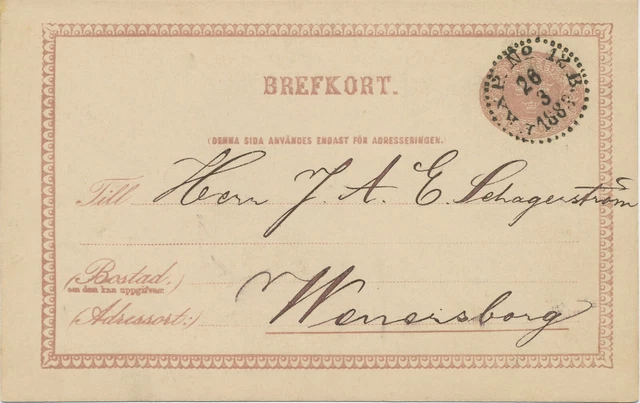 BREFKORT.
P. No 12 B
26
3
188
(DENNA SIDA ANVÄNDES ENDAST FÖR ADRESSERINGEN.
Till Herr J. A. E. Schagerström
(Bostad.)
om den kan uppgifvas:
Wenersborg
(Adressort:)